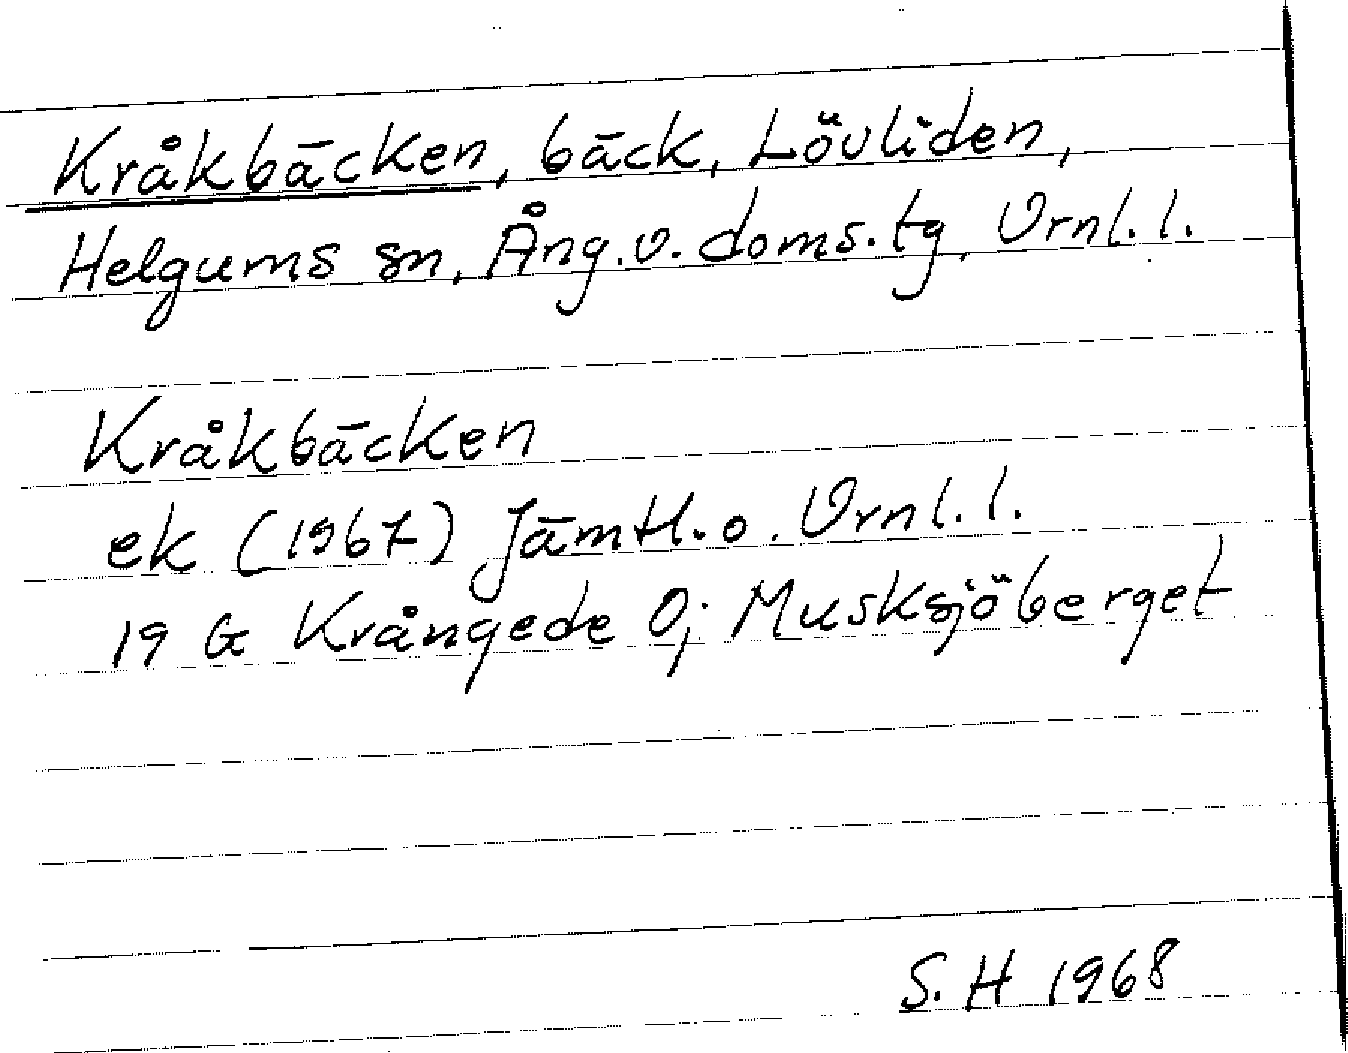 Kråkbäcken, bäck, Lövliden,
Helgums sn, Ång.v. doms.tg, Vrnl.l.
Kråkbäcken
ek (1967) Jämtl.o. Vrnl.l.
19 G Krångede 0j Musksjöberget
S.H 1968